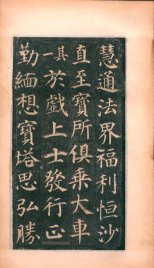 慧通法界福利恒沙
直至寶所俱乘大車
其於戲上士發行正
勤緬想寶塔思弘勝